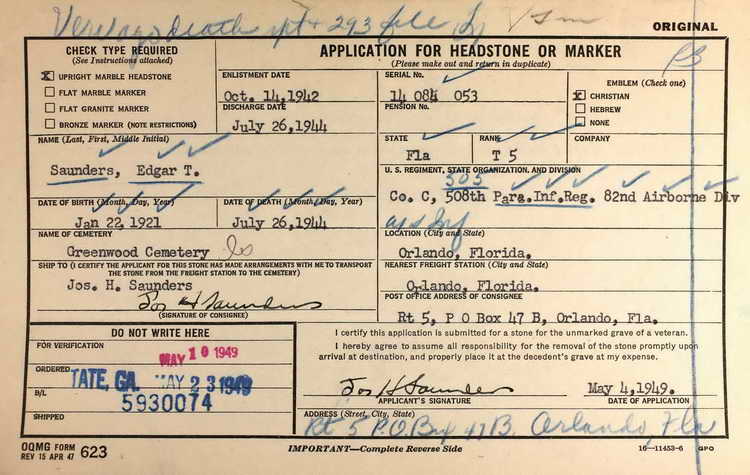 death rpt + 293 file
ORIGINAL
CHECK TYPE REQUIRED
(See Instructions attached)
APPLICATION FOR HEADSTONE OR MARKER
(Please make out and return in duplicate)
X UPRIGHT MARBLE HEADSTONE
FLAT MARBLE MARKER
FLAT GRANITE MARKER
BRONZE MARKER (NOTE RESTRICTIONS)
ENLISTMENT DATE
Oct. 14,1942
DISCHARGE DATE
July 26,1944
SERIAL No.
14 084 053
PENSION No.
EMBLEM (Check one)
X CHRISTIAN
HEBREW
NONE
NAME (Last, First, Middle Initial)
Saunders, Edgar T.
STATE
Fla
RANK
T 5
COMPANY
U. S. REGIMENT, STATE ORGANIZATION, AND DIVISION
505
Co. C, 508th Para.Inf.Reg. 82nd Airborne Div
DATE OF BIRTH (Month, Day, Year)
Jan 22, 1921
DATE OF DEATH (Month, Day, Year)
July 26,1944
NAME OF CEMETERY
Greenwood Cemetery
LOCATION (City and State)
Orlando, Florida.
SHIP TO (I CERTIFY THE APPLICANT FOR THIS STONE HAS MADE ARRANGEMENTS WITH ME TO TRANSPORT
THE STONE FROM THE FREIGHT STATION TO THE CEMETERY)
Jos. H. Saunders
Jos H Saunders
(SIGNATURE OF CONSIGNEE)
NEAREST FREIGHT STATION (City and State)
Orlando, Florida.
POST OFFICE ADDRESS OF CONSIGNEE
Rt 5, P O Box 47 B, Orlando, Fla.
DO NOT WRITE HERE
FOR VERIFICATION
MAY 10 1949
ORDERED
TATE, GA. MAY 23 1949
B/L
5930074
SHIPPED
I certify this application is submitted for a stone for the unmarked grave of a veteran.
I hereby agree to assume all responsibility for the removal of the stone promptly upon
arrival at destination, and properly place it at the decedent's grave at my expense.
Jos H Saunders
APPLICANT'S SIGNATURE
May 4,1949.
DATE OF APPLICATION
ADDRESS (Street, City, State)
Rt 5 P.O. Box 47 B. Orlando, Fla
OQMG FORM
REV 15 APR 47
623
IMPORTANT—Complete Reverse Side
16—11453-6 GPO